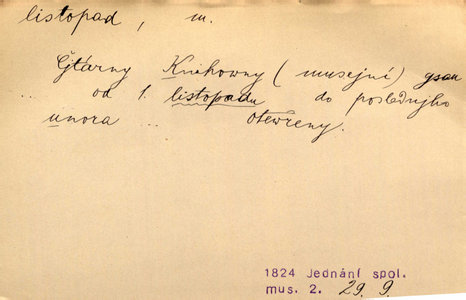 listopad, m.
Čjtárny Knihowny (musejní) gsau
.. od 1. listopadu do poslednjho
února ... otewřeny.
1824 Jednání spol.
mus. 2. 29. 9.